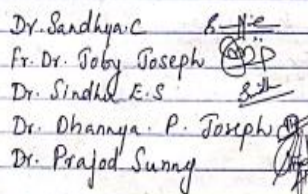 Dr. Sandhya.C
Fr. Dr. Toby Joseph
Dr. Sindhu E.S
Dr. Dhannya. P. Joseph
Dr. Prajod Sunny